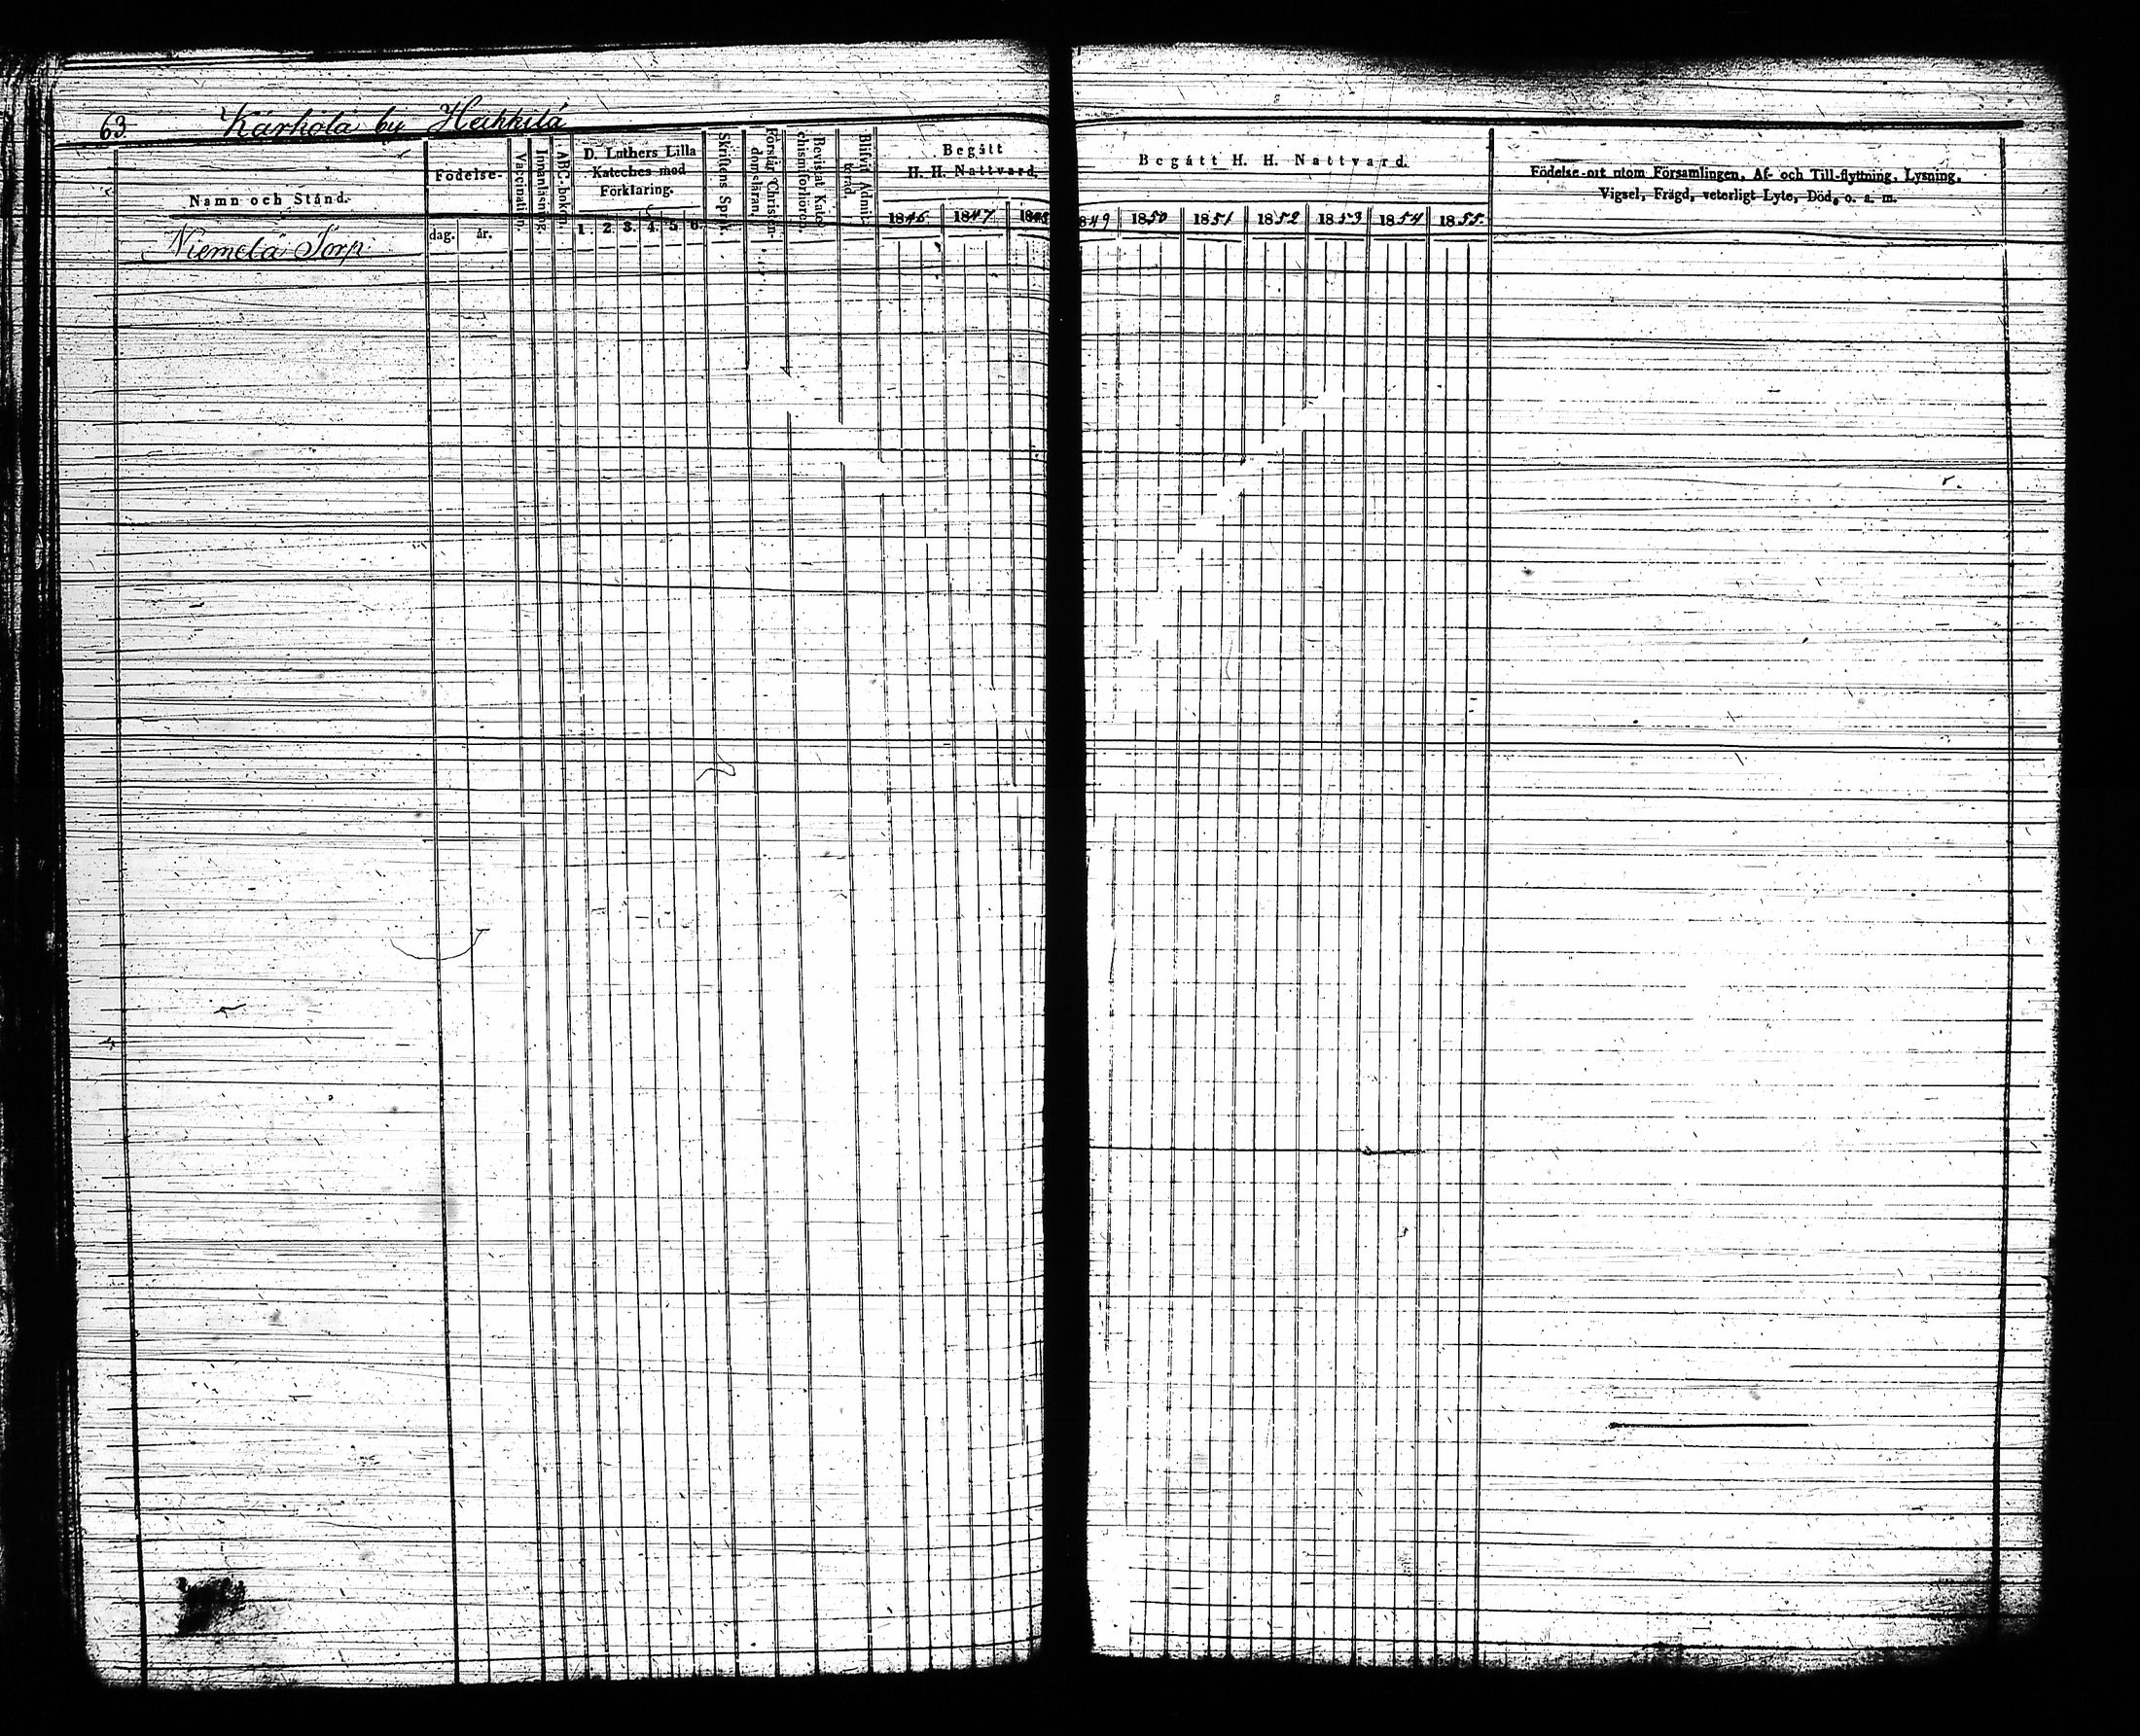 63. Kärhölä by Heikkilä
Namn och Stånd.
Födelse-
dag. år.
Vaccination.
Innanläsning.
ABC-boken.
D. Luthers Lilla
Kateches med
Förklaring.
1. 2. 3. 4. 5. 6.
Skriftens Språk.
Förstår Christen-
domsläran.
Bevistat Kate-
chismiförhören.
Blifvit Admit-
terad.
Begått
H. H. Nattvard.
1846 1847 1848
Begått H. H. Nattvard.
1849 1850 1851 1852 1853 1854 1855.
Födelse-ort utom Församlingen, Af- och Till-flyttning, Lysning,
Vigsel, Frägd, veterligt Lyte, Död, o. a. m.
Niemelä Torp